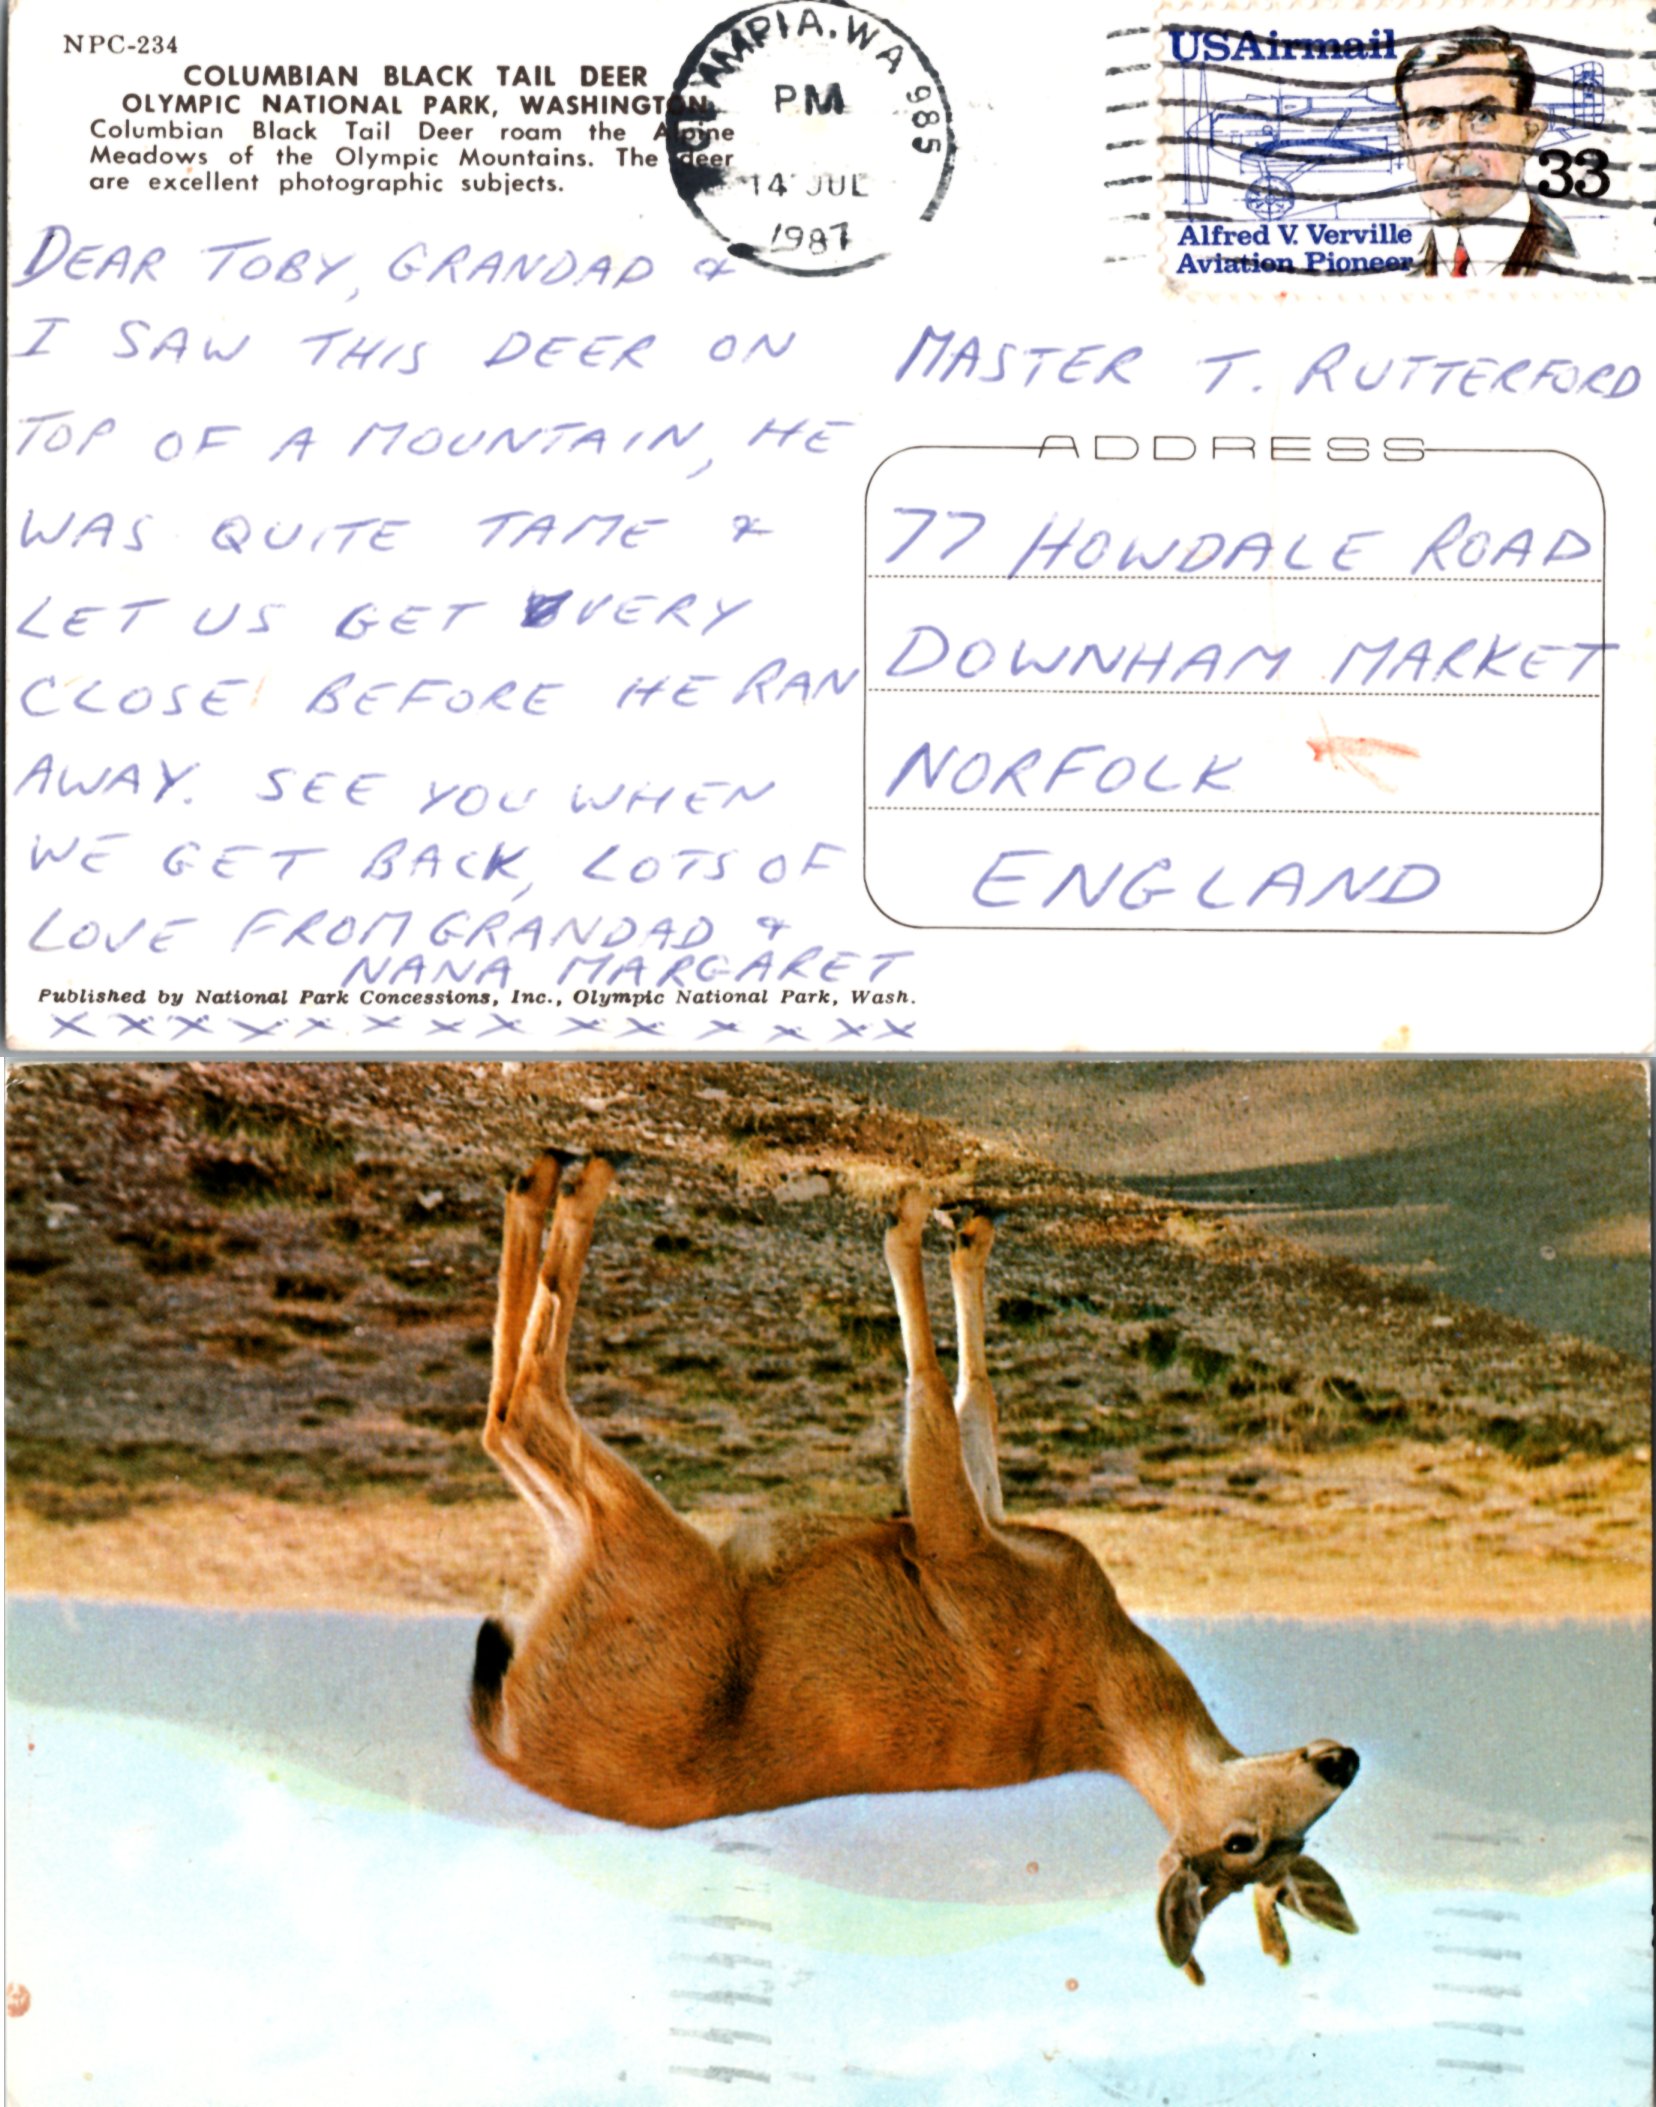 NPC-234
COLUMBIAN BLACK TAIL DEER
OLYMPIC NATIONAL PARK, WASHINGTON
Columbian Black Tail Deer roam the Alpine
Meadows of the Olympic Mountains. The deer
are excellent photographic subjects.
OLYMPIA, WA 985
PM
14 JUL
1987
USAirmail
33
Alfred V. Verville
Aviation Pioneer
DEAR TOBY, GRANDAD &
I SAW THIS DEER ON
TOP OF A MOUNTAIN, HE
WAS QUITE TAME &
LET US GET VERY
CLOSE BEFORE HE RAN
AWAY. SEE YOU WHEN
WE GET BACK, LOTS OF
LOVE FROM GRANDAD &
NANA MARGARET
Published by National Park Concessions, Inc., Olympic National Park, Wash.
X X X X X X X X X X X X X X
MASTER T. RUTTERFORD
ADDRESS
77 HOWDALE ROAD
DOWNHAM MARKET
NORFOLK
ENGLAND